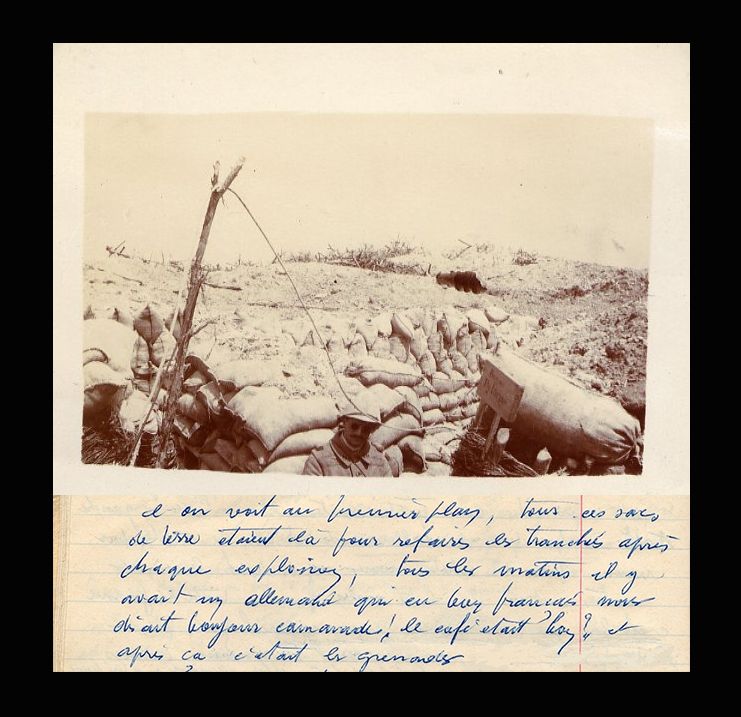 e on voit au premier plan, tous ces sacs
de terre etaient là pour refaires les tranchés après
chaque explosion, tous les matins il y
avait un allemand qui en bon francais nous
disait bonjour camarade! le café etait bon? et
après ca c'etait les grenades